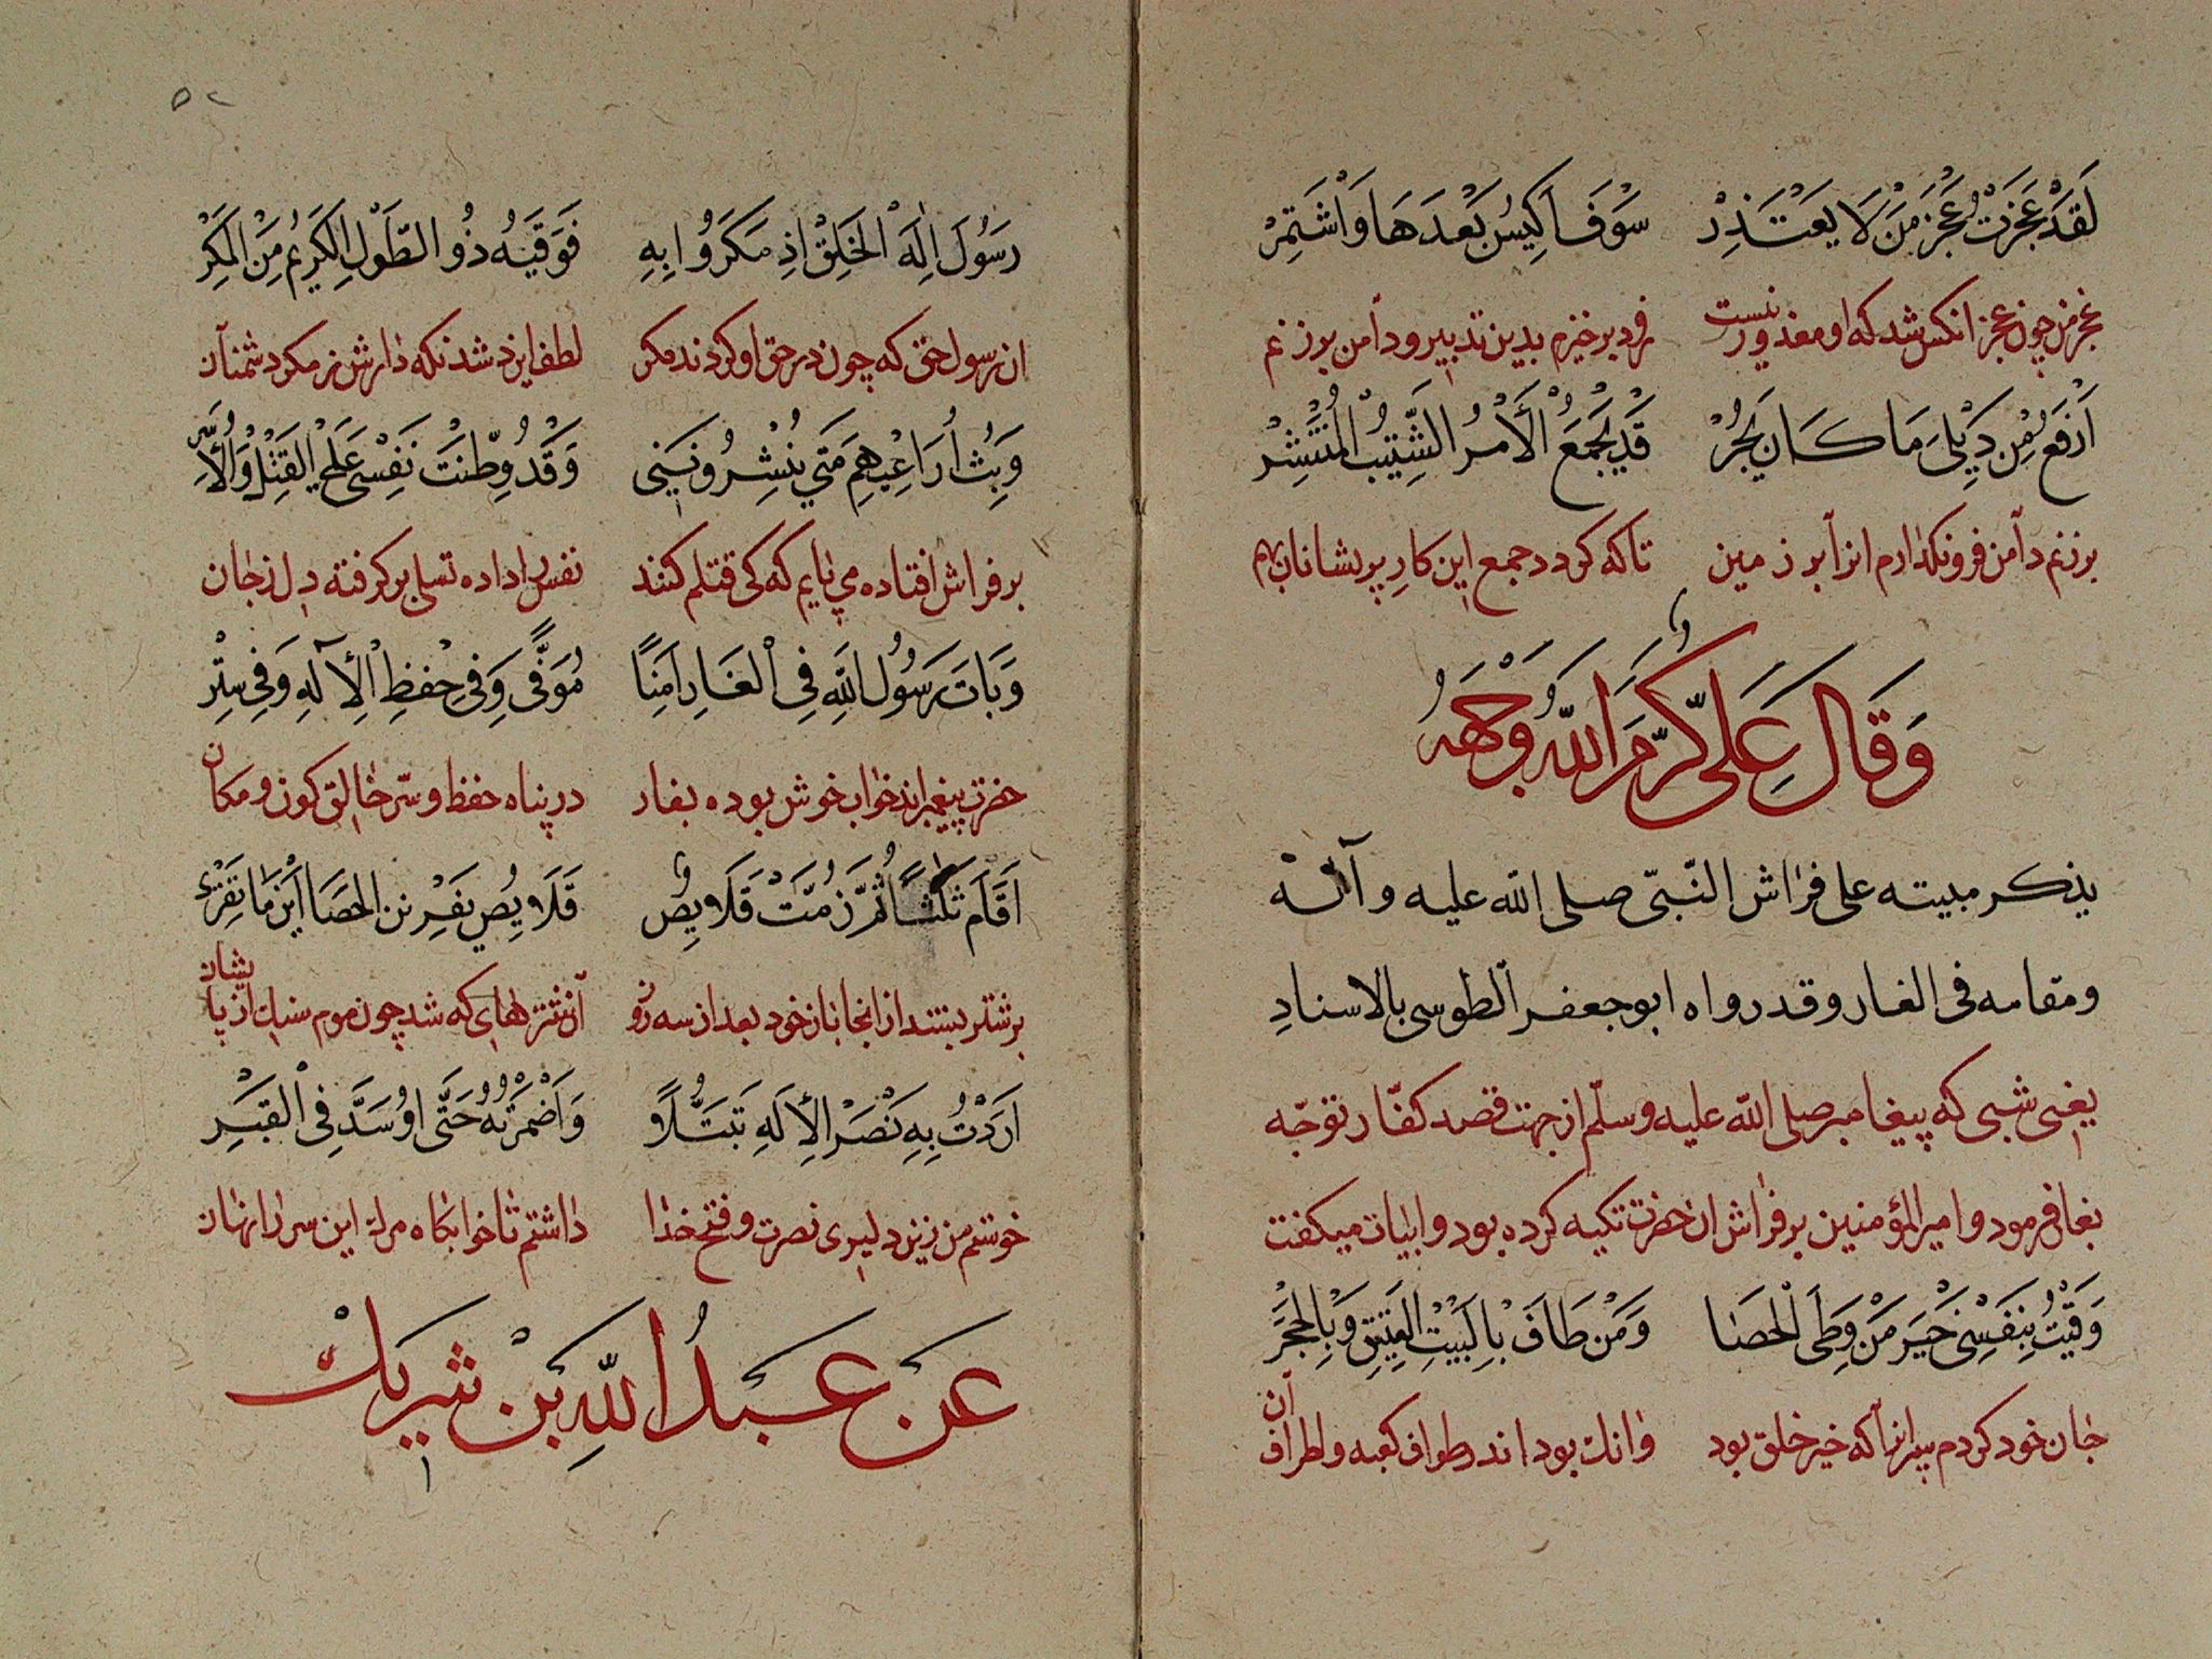 لَقَدْ عَجَزْتُ عَجْزَ مَنْ لَا يَعْتَذِرْ سَوْفَ اَكِيسُ بَعْدَهَا وَاَشْتَمِرْ
عجز من چون عجز انکس شد که او معذور نیست زود برخیزم بدین تدبیر و دامن برزنم
اَرْفَعُ مِنْ ذَيْلِىَ مَا كَانَ يَجُرْ قَدْ يُجْمَعُ الْاَمْرُ الشَّتِيْتُ الْمُنْتَشِرْ
برزنم دامن فرو نکذارم انرا بر زمین تا که کردد جمع این کار پریشانان بهم
وَقَالَ عَلِىٌّ كَرَّمَ اللّٰهُ وَجْهَهُ
یذکر مبیته علی فراش النّبیّ صلی اللّه علیه وآله
ومقامه فی الغار وقد رواه ابو جعفر الطوسی بالاسنادِ
یعنی شبی که پیغامبر صلی اللّه علیه وسلّم از جهت قصد کفّار توجّه
بغار فرمود و امیر المؤمنین بر فراش ان حضرت تکیه کرده بود و ابیات میکفت
وَقَيْتُ بِنَفْسِىْ خَيْرَ مَنْ وَطِىَ الْحَصَا وَمَنْ طَافَ بِالْبَيْتِ الْعَتِيْقِ وَبِالْحَجَرِ
جان خود کردم سپر انرا که خیر خلق بود وانک بود اندر طواف کعبه و اطراف آن
۵۲
رَسُوْلَ اِلٰهِ الْخَلْقِ اِذْ مَكَرُوْا بِهِ فَوَقَيَهُ ذُو الطَّوْلِ الْكَرِيْمُ مِنَ الْمَكْرِ
ان رسول حق که چون در حق او کردند مکر لطف ایزد شد نکه دارش ز مکر دشمنان
وَبِتُّ اُرَاعِيْهِمْ مَتٰى يَنْشُرُوْنَنِىْ وَقَدْ وُطِّنَتْ نَفْسِىْ عَلَى الْقَتْلِ وَالْاَسْرِ
بر فراش افتاده می پایم که کی قتلم کنند نفس را داده تسلی برکرفته دل ز جان
وَبَاتَ رَسُوْلُ اللّٰهِ فِى الْغَارِ اٰمِنًا مُوَفًّى وَفِىْ حِفْظِ الْاِلٰهِ وَفِىْ سِتْرِ
حضرت پیغمبر اندر خواب خوش بوده بغار در پناه حفظ و ستر خالق کون و مکان
اَقَامَ ثَلٰثًا ثُمَّ زُمَّتْ قَلَايِصُ قَلَايِصُ يَفْرِيْنَ الْحَصَا اَيْنَمَا تَفْرِىْ
بر شتر بستند از انجا بار خود بعد از سه روز آن شترهای که شد چون موم سنک از پایشان
اَرَدْتُ بِهِ نَصْرَ الْاِلٰهِ تَبَتُّلًا وَاَضْمَرْتُهُ حَتّٰى اُوَسَّدَ فِى الْقَبْرِ
خواستم من زین دلیری نصرت و فتح خدا داشتم تا خوابکاه مرک این سر را نهان
عَنْ عَبْدُ اللّٰهِ بْنْ شَرِيكْ